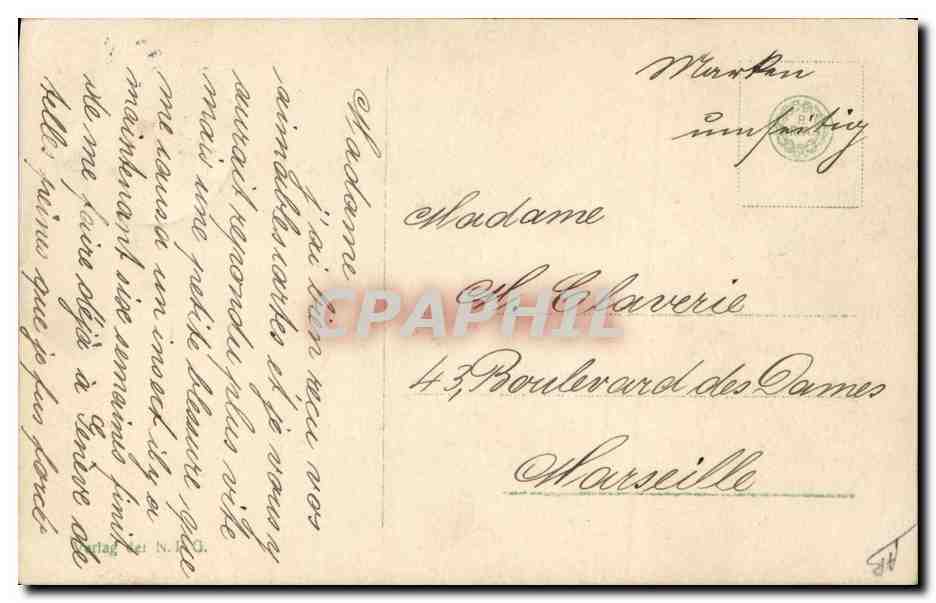 Marken
umseitig
Madame
M. Claverie
43, Boulevard des Dames
Marseille
Madame
j'ai bien reçu vos
aimables cartes et je vous y
aurait repondu plus vite
mais une petite blesure que
me causa un insect il y a
maintenant six semaines finit
de me faire déjà à Genève de
telle peine que je fus forcé
Verlag der N.P.G.
CPAPHIL
ARS